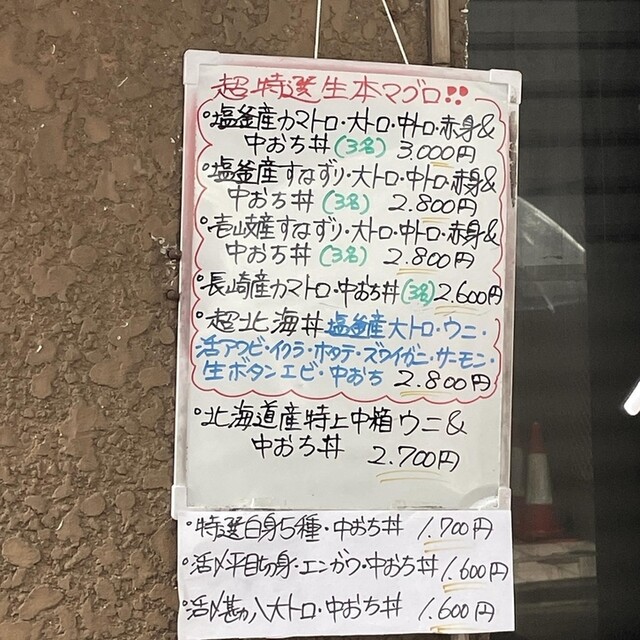 超特選生本マグロ!!
・塩釜産カマトロ・大トロ・中トロ・赤身&
中おち丼(3名) 3,000円
・塩釜産すなずり・大トロ・中トロ・赤身&
中おち丼(3名) 2,800円
・壱岐産すなずり・大トロ・中トロ・赤身&
中おち丼(3名) 2,800円
・長崎産カマトロ・中おち丼(3名)2,600円
・超北海丼 塩釜産大トロ・ウニ・
活アワビ・イクラ・ホタテ・ズワイガニ・サーモン・
生ボタンエビ・中おち 2,800円
・北海道産特上中箱ウニ&
中おち丼 2,700円
・特選白身5種・中おち丼 1,700円
・活〆平目切身・エンガワ・中おち丼 1,600円
・活〆勘八大トロ・中おち丼 1,600円